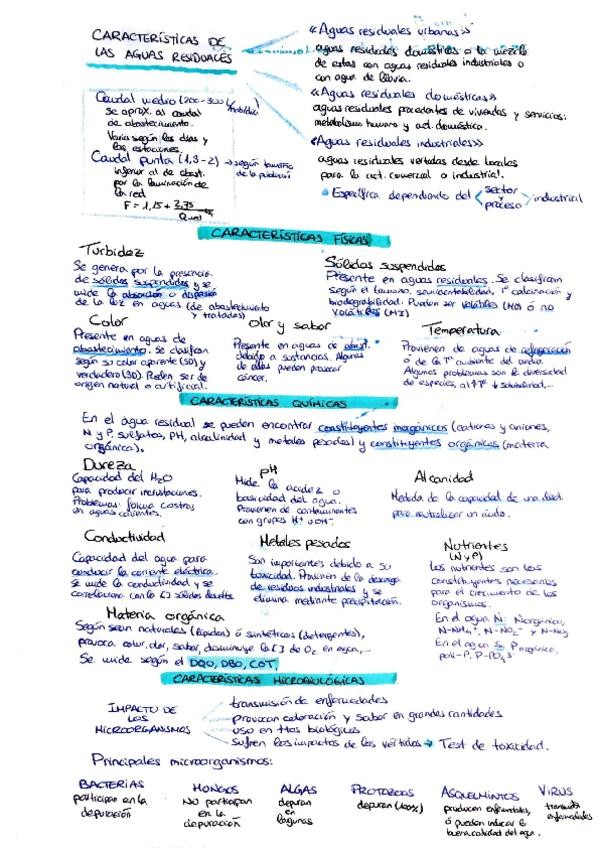 CARACTERÍSTICAS DE
LAS AGUAS RESIDUALES
«Aguas residuales urbanas»
aguas residuales domésticas o la mezcla
de estas con aguas residuales industriales o
con agua de lluvia.
«Aguas residuales domésticas»
aguas residuales procedentes de viviendas y servicios:
metabolismo humano y act. doméstica.
«Aguas residuales industriales»
aguas residuales vertadas desde locales
para la act. comercial o industrial.
Específica dependiendo del sector proceso industrial
Caudal medio (200-300 l/hab.día)
se aprox. al caudal
de abastecimiento.
Varia según los días y
las estaciones.
Caudal punta (1,3-2) → según tamaño
de la población
inferior al de abast.
por la laminación de
la red
F = 1,15 + 2,75
CARACTERÍSTICAS FÍSICAS
Turbidez
Se genera por la presencia
de sólidos suspendidos y se
mide la absorción o dispersión
de la luz en aguas (de abastecimiento
y tratadas)
Sólidos suspendidos
Presente en aguas residuales. Se clasifican
según el tamaño, sedimentabilidad, Tª calcinación y
biodegradabilidad. Pueden ser volátiles (MO) ó no
volátiles (MI)
Color
Presente en aguas de
abastecimiento. Se clasifican
según su color aparente (SD) y
verdadero (3D). Pueden ser de
origen natural o artificial.
Olor y sabor
Presente en aguas de abast.
debido a sustancias. Algunas
de ellas pueden provocar
cáncer.
Temperatura
Provienen de aguas de refrigeración
ó de la Tª ambiente del medio.
Algunos problemas son la diversidad
de especies, al ↑Tª ↓ solubilidad,...
CARACTERÍSTICAS QUÍMICAS
En el agua residual se pueden encontrar constituyentes inorgánicos (cationes y aniones,
N y P, sulfatos, PH, alcalinidad y metales pesados) y constituyentes orgánicos (materia
orgánica).
Dureza
Capacidad del H₂O
para producir incrustaciones.
Problemas: forma costras
en aguas calientes.
pH
Mide la acidez o
basicidad del agua.
Provienen de contaminantes
con grupos H⁺ u OH⁻.
Alcanidad
Medida de la capacidad de una disol.
para neutralizar un ácido.
Conductividad
Capacidad del agua para
conducir la corriente eléctrica.
Se mide la conductividad y se
correlaciona con la [] sólidos disueltos
Metales pesados
Son importantes debido a su
toxicidad. Provienen de la descarga
de residuos industriales y se
elimina mediante precipitación.
Nutrientes
(N y P)
Los nutrientes son los
constituyentes necesarios
para el crecimiento de los
organismos.
En el agua N: Norgánico,
N-NH₄⁺, N-NO₂⁻ y N-NO₃
En el agua P: P orgánico,
poli-P, P-PO₄³⁻
Materia orgánica
Según sean naturales (lípidos) ó sintéticos (detergentes),
provoca color, olor, sabor, disminuye la [] de O₂ en agua,...
Se mide según el DQO, DBO, COT.
CARACTERÍSTICAS MICROBIOLÓGICAS
IMPACTO DE
LOS
MICROORGANISMOS
transmisión de enfermedades
provocan coloración y sabor en grandes cantidades
uso en ttos biológicos
sufren los impactos de los vertidos → Test de toxicidad.
Principales microorganismos:
BACTERIAS
participan en la
depuración
HONGOS
NO participan
en la
depuración
ALGAS
depuran
en
lagunas
PROTOZOOS
depuran (100%)
ASQUELMINTOS
producen enfermedades,
ó pueden indicar la
buena calidad del agua.
VIRUS
transmite
enfermedades